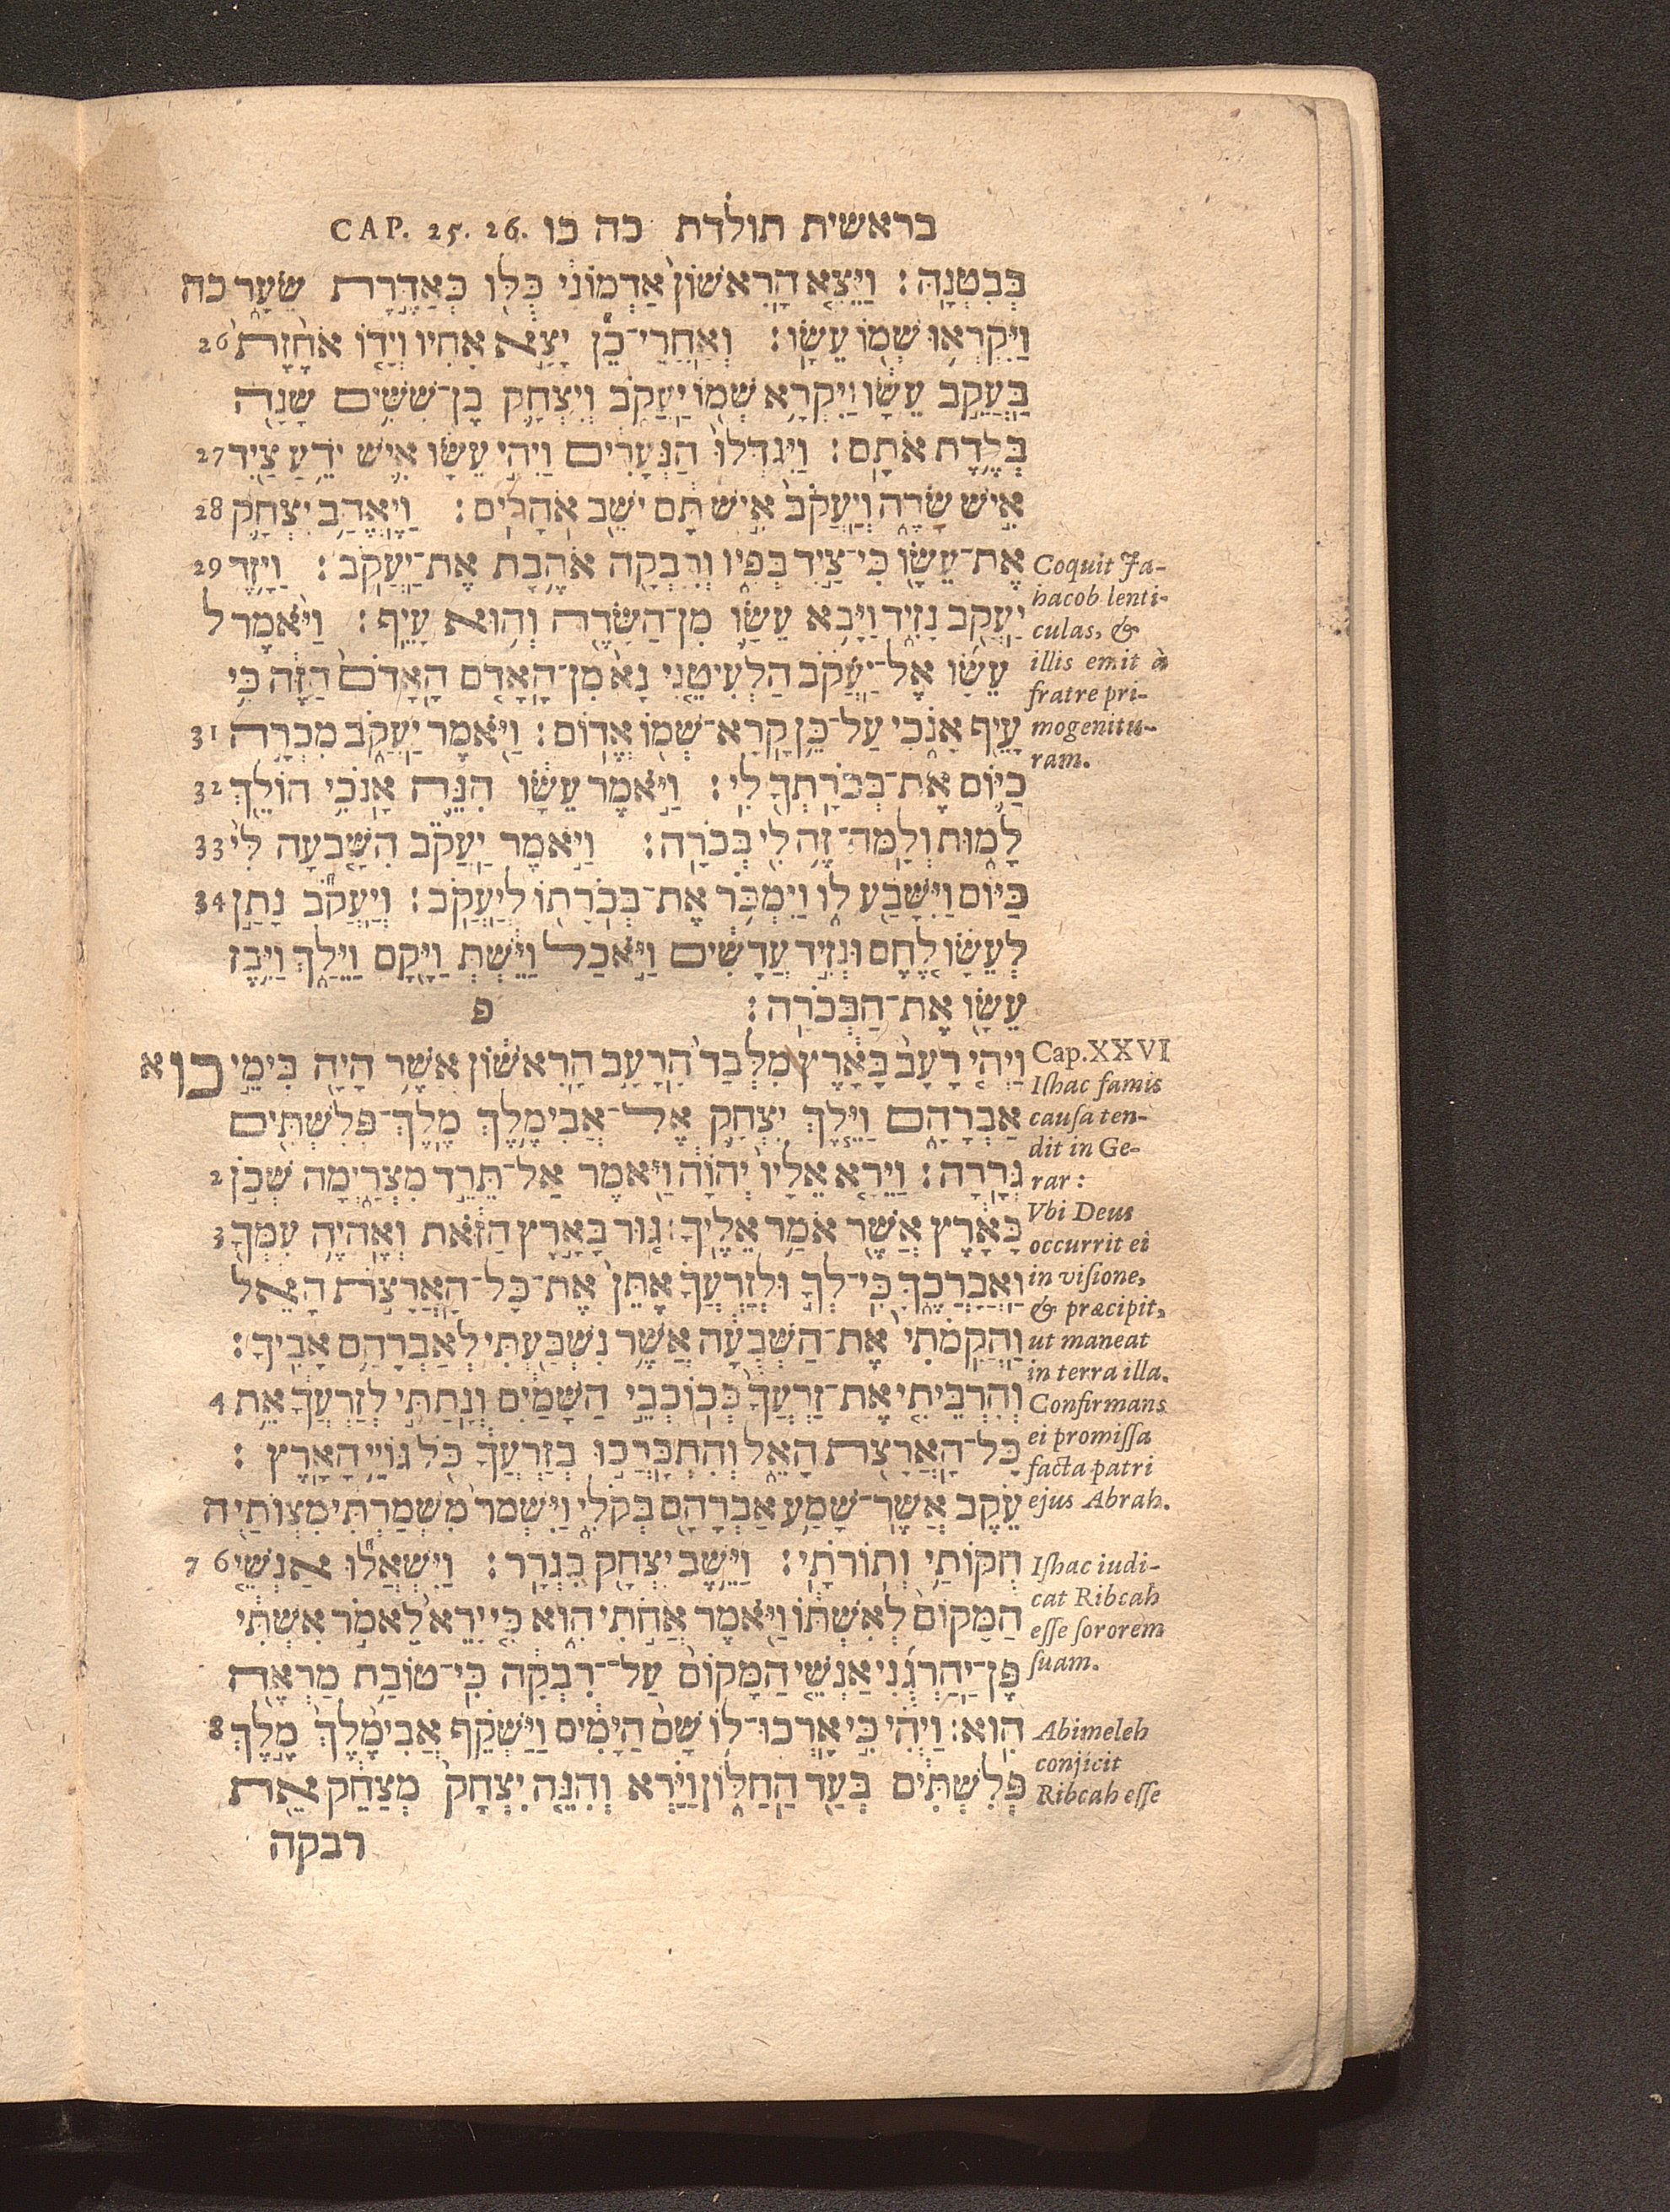 בראשית תולדת כה כו CAP. 25. 26.
בְּבִטְנָהּ׃ וַיֵּצֵא הָרִאשׁוֹן אַדְמוֹנִי כֻּלּוֹ כְּאַדֶּרֶת שֵׂעָר כה
וַיִּקְרְאוּ שְׁמוֹ עֵשָׂו׃ וְאַחֲרֵי־כֵן יָצָא אָחִיו וְיָדוֹ אֹחֶזֶת 26
בַּעֲקֵב עֵשָׂו וַיִּקְרָא שְׁמוֹ יַעֲקֹב וְיִצְחָק בֶּן־שִׁשִּׁים שָׁנָה
בְּלֶדֶת אֹתָם׃ וַיִּגְדְּלוּ הַנְּעָרִים וַיְהִי עֵשָׂו אִישׁ יֹדֵעַ צַיִד 27
אִישׁ שָׂדֶה וְיַעֲקֹב אִישׁ תָּם יֹשֵׁב אֹהָלִים׃ וַיֶּאֱהַב יִצְחָק 28
אֶת־עֵשָׂו כִּי־צַיִד בְּפִיו וְרִבְקָה אֹהֶבֶת אֶת־יַעֲקֹב׃ וַיָּזֶד 29
יַעֲקֹב נָזִיד וַיָּבֹא עֵשָׂו מִן־הַשָּׂדֶה וְהוּא עָיֵף׃ וַיֹּאמֶר ל
עֵשָׂו אֶל־יַעֲקֹב הַלְעִיטֵנִי נָא מִן־הָאָדֹם הָאָדֹם הַזֶּה כִּי
עָיֵף אָנֹכִי עַל־כֵּן קָרָא־שְׁמוֹ אֱדוֹם׃ וַיֹּאמֶר יַעֲקֹב מִכְרָה 31
כַיּוֹם אֶת־בְּכֹרָתְךָ לִי׃ וַיֹּאמֶר עֵשָׂו הִנֵּה אָנֹכִי הוֹלֵךְ 32
לָמוּת וְלָמָּה־זֶּה לִי בְּכֹרָה׃ וַיֹּאמֶר יַעֲקֹב הִשָּׁבְעָה לִּי 33
כַּיּוֹם וַיִּשָּׁבַע לוֹ וַיִּמְכֹּר אֶת־בְּכֹרָתוֹ לְיַעֲקֹב׃ וְיַעֲקֹב נָתַן 34
לְעֵשָׂו לֶחֶם וּנְזִיד עֲדָשִׁים וַיֹּאכַל וַיֵּשְׁתְּ וַיָּקָם וַיֵּלַךְ וַיִּבֶז
עֵשָׂו אֶת־הַבְּכֹרָה׃ פ
וַיְהִי רָעָב בָּאָרֶץ מִלְּבַד הָרָעָב הָרִאשׁוֹן אֲשֶׁר הָיָה בִּימֵי כו א
אַבְרָהָם וַיֵּלֶךְ יִצְחָק אֶל־אֲבִימֶלֶךְ מֶלֶךְ־פְּלִשְׁתִּים
גְּרָרָה׃ וַיֵּרָא אֵלָיו יְהוָֹה וַיֹּאמֶר אַל־תֵּרֵד מִצְרָיְמָה שְׁכֹן 2
בָּאָרֶץ אֲשֶׁר אֹמַר אֵלֶיךָ׃ גּוּר בָּאָרֶץ הַזֹּאת וְאֶהְיֶה עִמְּךָ 3
וַאֲבָרְכֶךָּ כִּי־לְךָ וּלְזַרְעֲךָ אֶתֵּן אֶת־כָּל־הָאֲרָצֹת הָאֵל
וַהֲקִמֹתִי אֶת־הַשְּׁבֻעָה אֲשֶׁר נִשְׁבַּעְתִּי לְאַבְרָהָם אָבִיךָ׃
וְהִרְבֵּיתִי אֶת־זַרְעֲךָ כְּכוֹכְבֵי הַשָּׁמַיִם וְנָתַתִּי לְזַרְעֲךָ אֵת 4
כָּל־הָאֲרָצֹת הָאֵל וְהִתְבָּרֲכוּ בְזַרְעֲךָ כֹּל גּוֹיֵי הָאָרֶץ׃
עֵקֶב אֲשֶׁר־שָׁמַע אַבְרָהָם בְּקֹלִי וַיִּשְׁמֹר מִשְׁמַרְתִּי מִצְוֹתַי ה
חֻקּוֹתַי וְתוֹרֹתָי׃ וַיֵּשֶׁב יִצְחָק בִּגְרָר׃ וַיִּשְׁאֲלוּ אַנְשֵׁי 6 7
הַמָּקוֹם לְאִשְׁתּוֹ וַיֹּאמֶר אֲחֹתִי הִוא כִּי יָרֵא לֵאמֹר אִשְׁתִּי
פֶּן־יַהַרְגֻנִי אַנְשֵׁי הַמָּקוֹם עַל־רִבְקָה כִּי־טוֹבַת מַרְאֶה
הִוא׃ וַיְהִי כִּי אָרְכוּ־לוֹ שָׁם הַיָּמִים וַיַּשְׁקֵף אֲבִימֶלֶךְ מֶלֶךְ 8
פְּלִשְׁתִּים בְּעַד הַחַלּוֹן וַיַּרְא וְהִנֵּה יִצְחָק מְצַחֵק אֵת
רבקה
Coquit Ja-
hacob lenti-
culas, &
illis emit à
fratre pri-
mogenitu-
ram.
Cap. XXVI
Iſhac famis
cauſa ten-
dit in Ge-
rar:
Vbi Deus
occurrit ei
in viſione,
& præcipit,
ut maneat
in terra illa.
Confirmans
ei promiſſa
facta patri
ejus Abrah.
Iſhac iudi-
cat Ribcah
eſſe ſororem
ſuam.
Abimeleh
conjicit
Ribcah eſſe